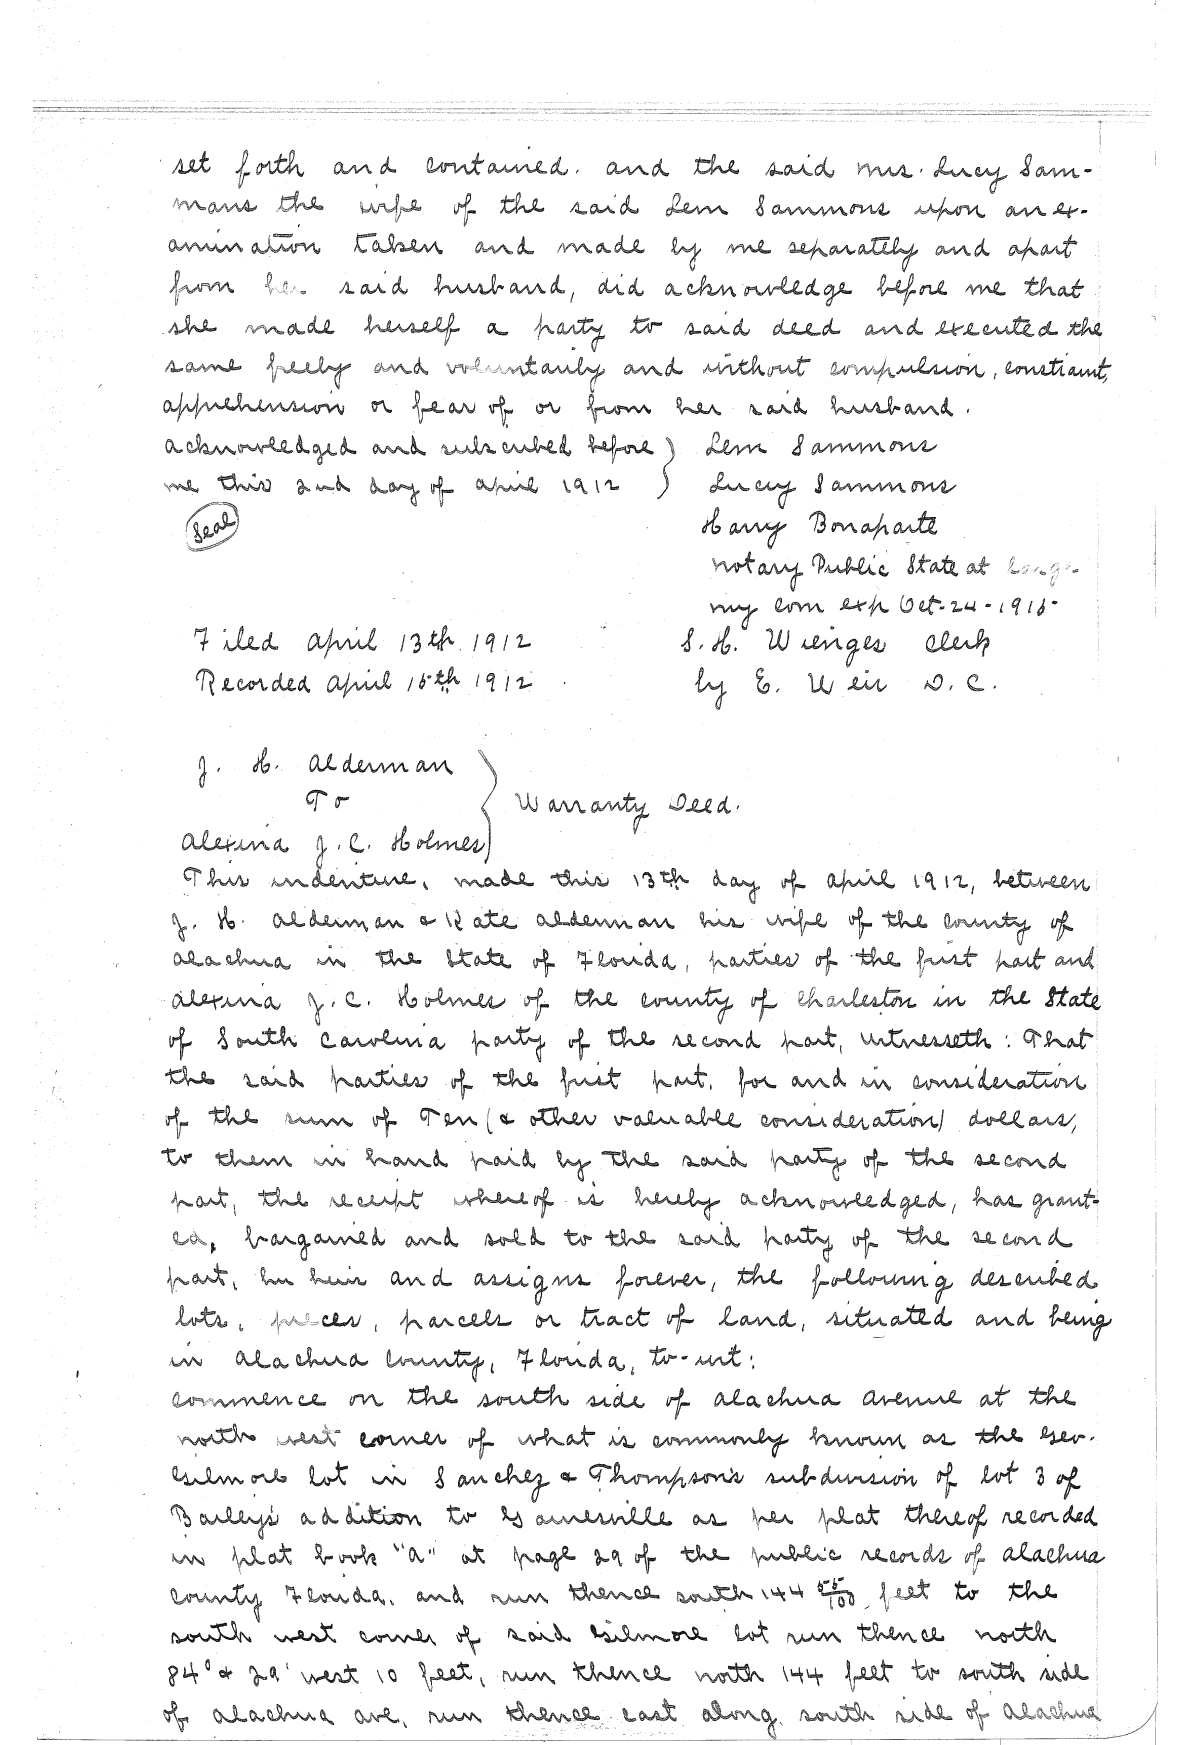 set forth and contained. and the said Mrs. Lucy Sam-
mons the wife of the said Lem Sammons upon an ex-
amination taken and made by me separately and apart
from her said husband, did acknowledge before me that
she made herself a party to said deed and executed the
same freely and voluntarily and without compulsion, constraint,
apprehension or fear of or from her said husband.
acknowledged and subscribed before } Lem Sammons
me this 2nd day of april 1912 } Lucy Sammons
Seal
Harry Bonaparte
Notary Public State at Large
my com exp Oct-24-1915-
Filed april 13th 1912 S. H. Wienges Clerk
Recorded april 15th 1912 by E. Weir D. C.
J. H. Alderman
To } Warranty Deed.
Alexina J. C. Holmes
This indenture, made this 13th day of april 1912, between
J. H. Alderman & Kate Alderman his wife of the county of
Alachua in the State of Florida, parties of the first part and
Alexina J. C. Holmes of the county of Charleston in the State
of South Carolina party of the second part, witnesseth: That
the said parties of the first part, for and in consideration
of the sum of Ten (& other valuable consideration) dollars,
to them in hand paid by the said party of the second
part, the receipt whereof is hereby acknowledged, has grant-
ed, bargained and sold to the said party of the second
part, her heirs and assigns forever, the following described
lots, pieces, parcels or tract of land, situated and being
in Alachua County, Florida, to-wit:
commence on the south side of Alachua Avenue at the
north west corner of what is commonly known as the Geo.
Gilmore lot in Sanchez & Thompson's subdivision of lot 3 of
Bailey's addition to Gainesville as per plat thereof recorded
in plat book "a" at page 29 of the public records of Alachua
County Florida, and run thence south 144 55/100 feet to the
south west corner of said Gilmore lot run thence north
84° & 29' west 10 feet, run thence north 144 feet to south side
of Alachua ave, run thence east along south side of Alachua